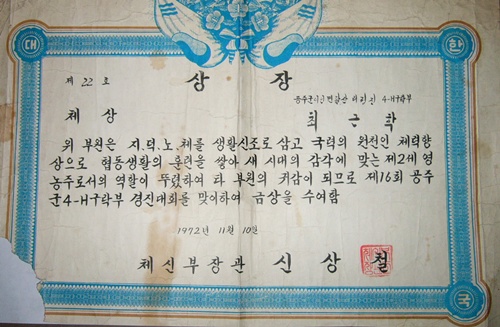 대 한
제 22 호
상 장
4-H구락부
체 상
최 근 학
위 부원은 지.덕.노.체를 생활신조로 삼고 국력의 원천인 체력향
상으로 협동생활의 훈련을 쌓아 새 시대의 감각에 맞는 제2세 영
농주로서의 역할이 뚜렸하여 타 부원의 귀감이 되므로 제16회 공주
군4-H구락부 경진대회를 맞이하여 금상을 수여함
1972년 11월 10일
체신부장관 신 상 철
국